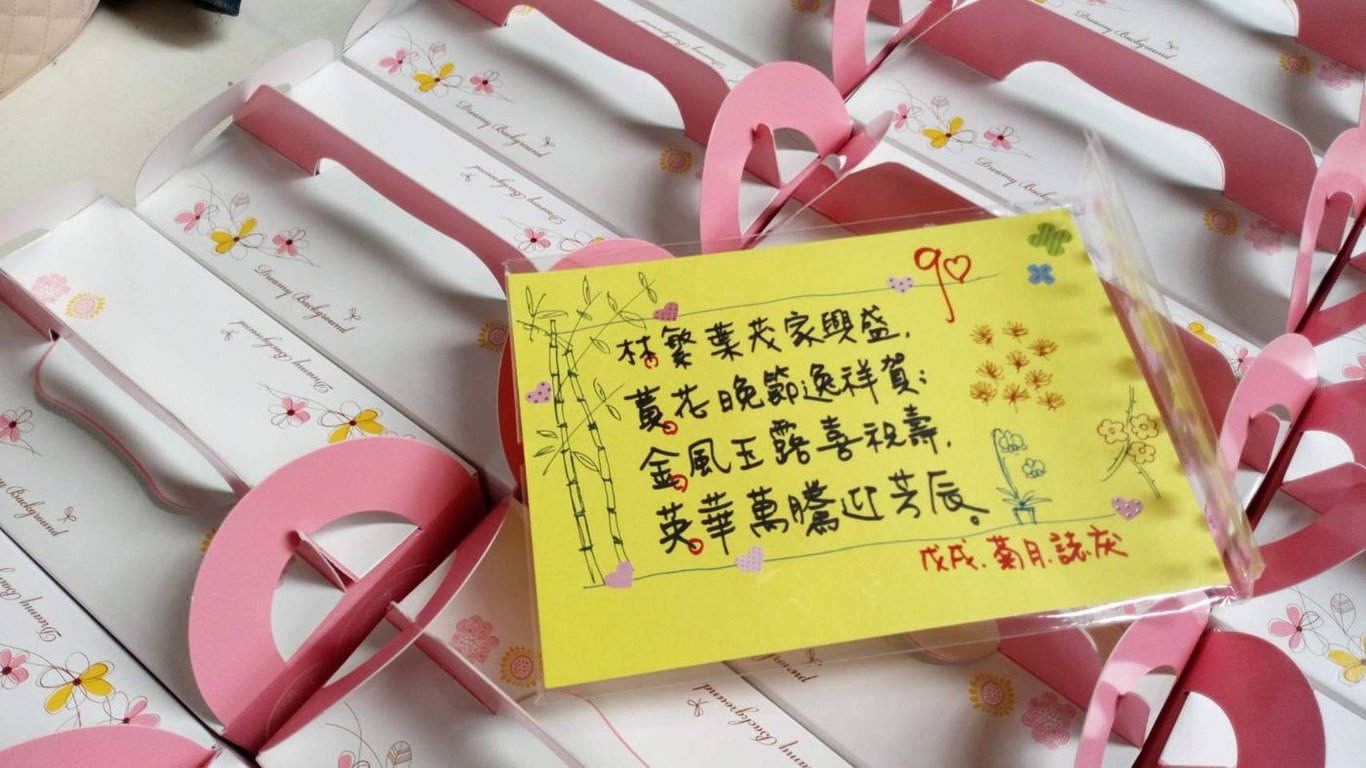 9♡
林繁葉茂家興盛,
黃花晚節逸祥賀;
金風玉露喜祝壽,
英華萬騰迎芳辰。
戊戌.菊月.誌
Dreamy Background
Dreamy Background
Dreamy Background
Dreamy Background
Dreamy Background
Dreamy Background
Dreamy Background
Background
Background